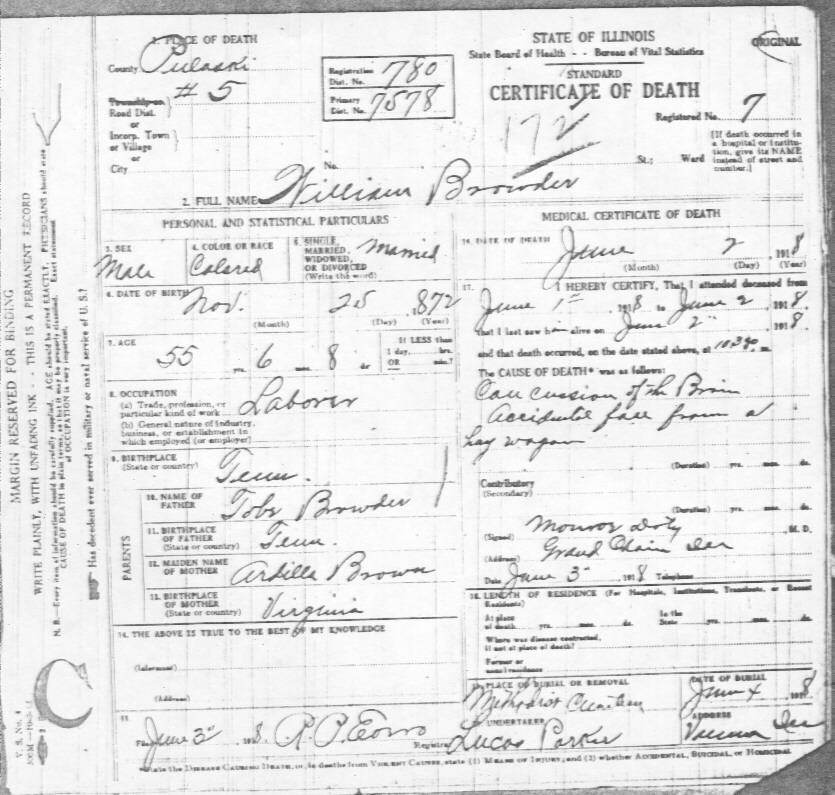 1. PLACE OF DEATH
County Pulaski
Township or # 5
Road Dist.
or
Incorp. Town
or Village
or
City
Registration Dist. No. 780
Primary Dist. No. 7578
STATE OF ILLINOIS
State Board of Health - - Bureau of Vital Statistics
STANDARD
CERTIFICATE OF DEATH
ORIGINAL
172
Registered No. 7
No. St.; Ward
[If death occurred in
a hospital or institu-
tion, give its NAME
instead of street and
number.]
2. FULL NAME William Browder
PERSONAL AND STATISTICAL PARTICULARS
3. SEX
Male
4. COLOR OR RACE
Colored
5. SINGLE,
MARRIED, Married
WIDOWED,
OR DIVORCED
(Write the word)
6. DATE OF BIRTH Nov. 25, 1872
(Month) (Day) (Year)
7. AGE
55 yrs. 6 mos. 8 ds
If LESS than
1 day, hrs.
OR min.?
8. OCCUPATION
(a) Trade, profession, or
particular kind of work Laborer
(b) General nature of industry,
business, or establishment in
which employed (or employer)
9. BIRTHPLACE
(State or country) Tenn.
PARENTS
10. NAME OF
FATHER Tobe Browder
11. BIRTHPLACE
OF FATHER
(State or country) Tenn.
12. MAIDEN NAME
OF MOTHER Ardella Brown
13. BIRTHPLACE
OF MOTHER
(State or country) Virginia
14. THE ABOVE IS TRUE TO THE BEST OF MY KNOWLEDGE
(Informant)
(Address)
15.
Filed June 3d 1918. Registrar
MEDICAL CERTIFICATE OF DEATH
16. DATE OF DEATH June 2, 1918
(Month) (Day) (Year)
17. I HEREBY CERTIFY, That I attended deceased from
June 1st 1918 to June 2, 1918.
that I last saw him alive on June 2", 1918.
and that death occurred, on the date stated above, at m.
The CAUSE OF DEATH* was as follows:
Concussion of the Brain
Accidental fall from a
hay wagon
(Duration) yrs. mos. ds.
Contributory
(Secondary)
(Duration) yrs. mos. ds.
(Signed) Monroe Doty M. D.
(Address) Grand Chain Ill
Date June 3" 1918 Telephone
18. LENGTH OF RESIDENCE (For Hospitals, Institutions, Transients, or Recent
Residents)
At place
of death yrs. mos. ds.
In the
State yrs. mos. ds.
Where was disease contracted,
if not at place of death?
Former or
usual residence
19. PLACE OF BURIAL OR REMOVAL
Methodist Cemetery
DATE OF BURIAL
June 4 1918
20. UNDERTAKER
Lucas Parker
ADDRESS
Vienna Ill
*State the DISEASE CAUSING DEATH, or, in deaths from VIOLENT CAUSES, state (1) MEANS OF INJURY; and (2) whether ACCIDENTAL, SUICIDAL, OR HOMICIDAL
MARGIN RESERVED FOR BINDING
WRITE PLAINLY, WITH UNFADING INK - - THIS IS A PERMANENT RECORD
N. B.—Every item of information should be carefully supplied. AGE should be stated EXACTLY. PHYSICIANS should state
CAUSE OF DEATH in plain terms, so that it may be properly classified. Exact statement
of OCCUPATION is very important.
Has decedent ever served in military or naval service of U. S.?
V. S. No. 4
C